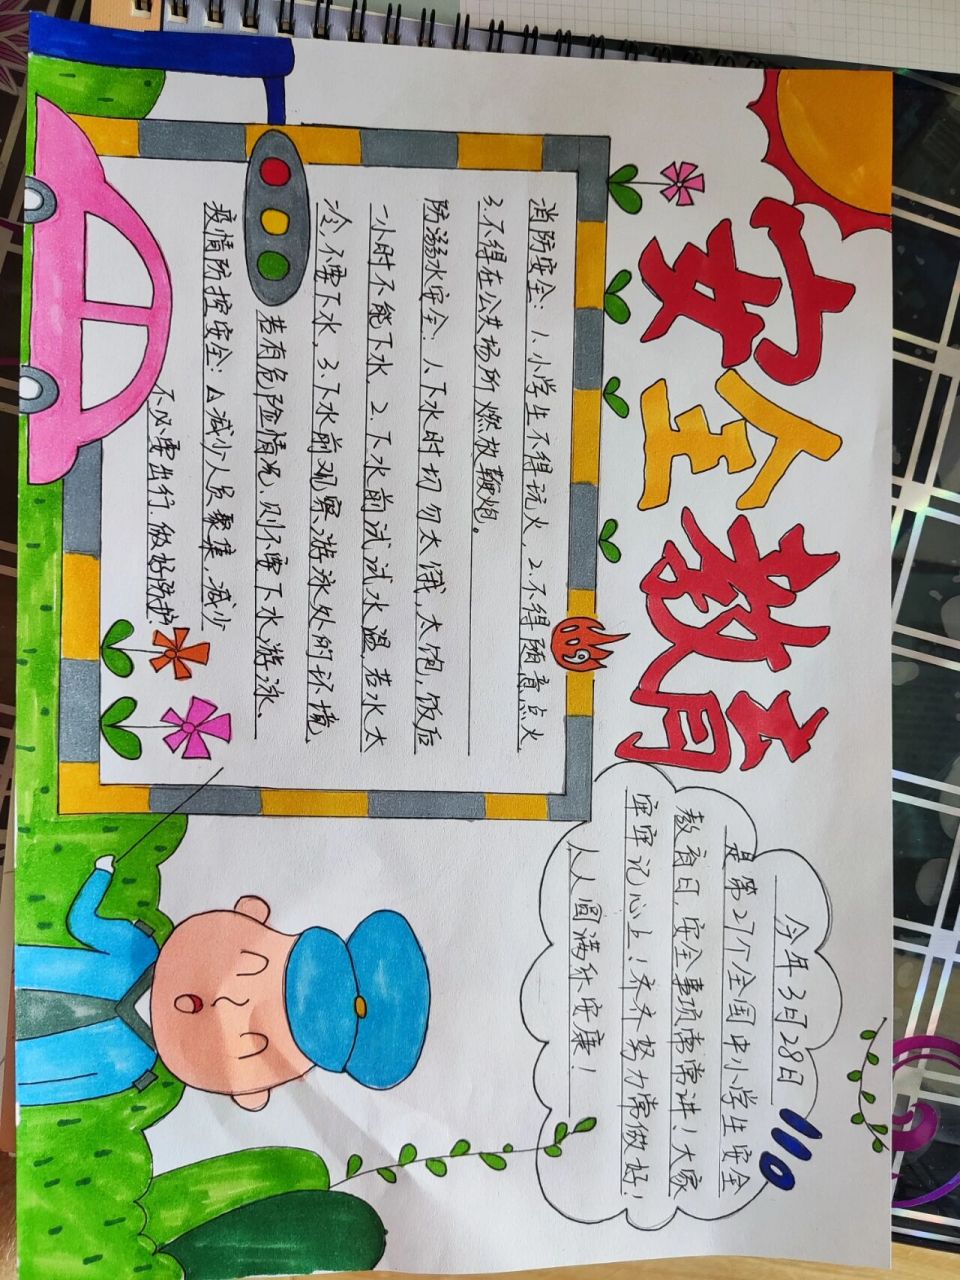 安全教育
今年3月28日
是第27个全国中小学生安全
教育日,安全事项常常讲!大家
牢牢记心上!齐齐努力常做好!
人人圆满乐安康!
110
消防安全:1.小学生不得玩火,2.不得随意点火
3.不得在公共场所燃放鞭炮。
防溺水安全:1.下水时切勿太饿,太饱,饭后
一小时不能下水,2.下水前试试水温,若水太
冷,不要下水,3.下水前观察游泳处的环境,
若有危险情况,则不要下水游泳.
疫情防控安全:△减少人员聚集,减少
不必要出行,做好防护
119